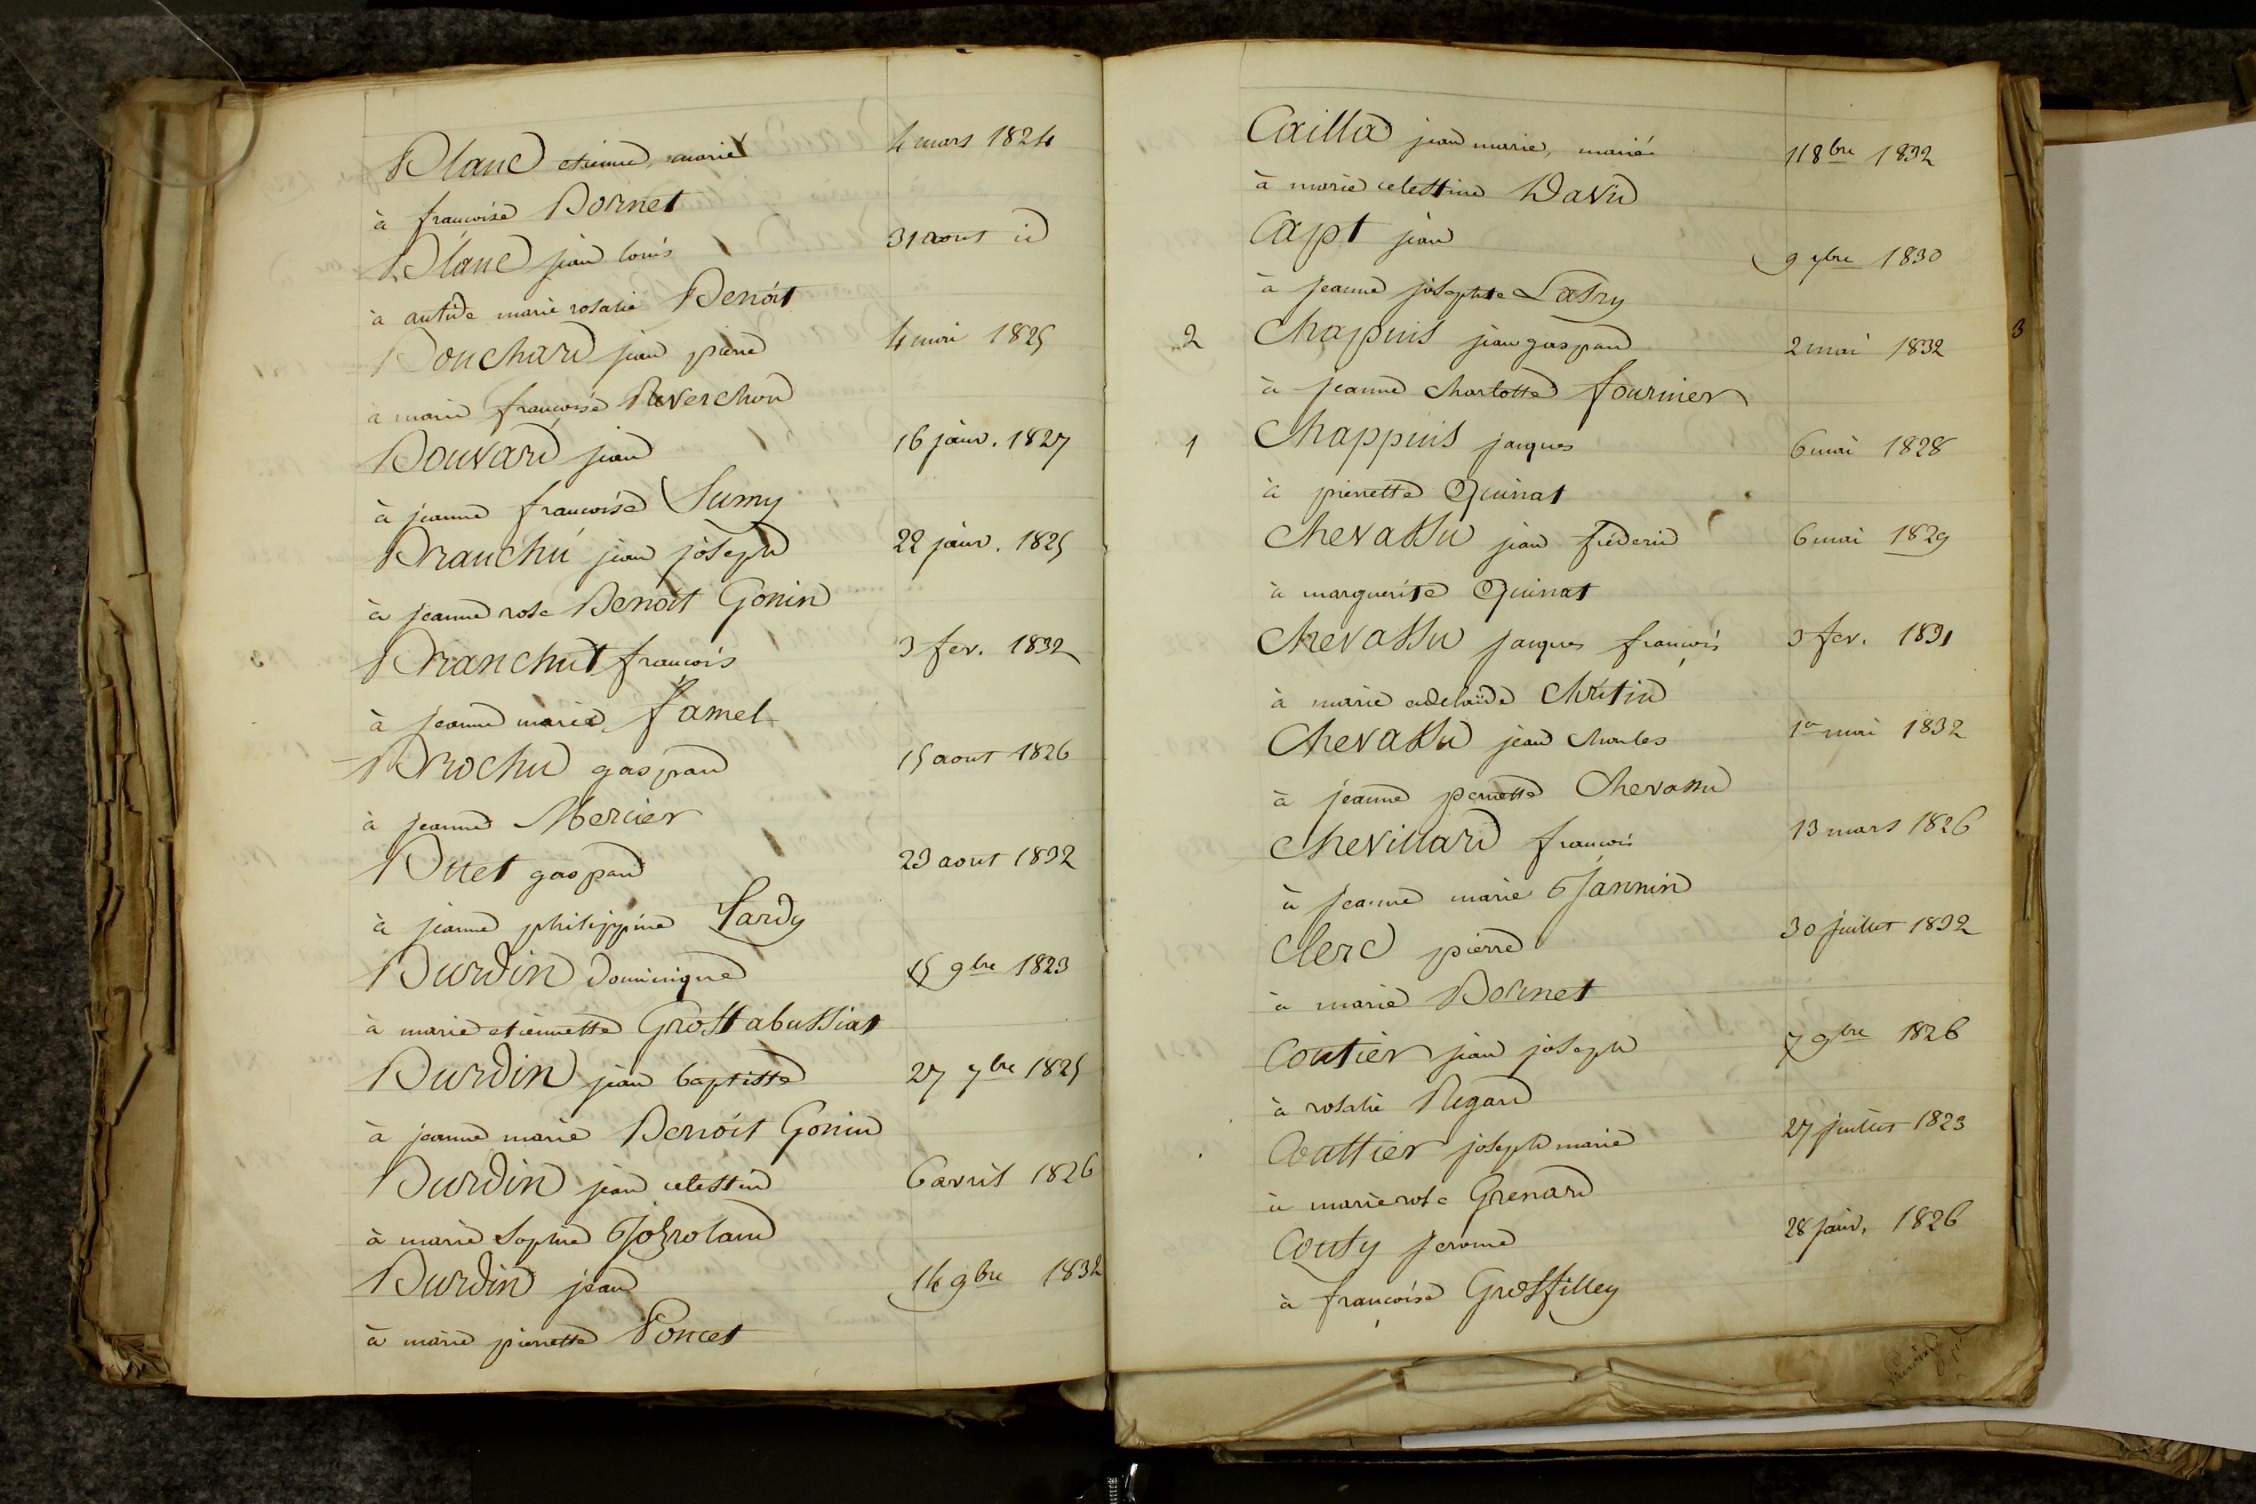 Blanc etienne, marié 4 mars 1824
à françoise Bornet
Blanc jean louis 31 aout id
à antide marie rosalie Benoit
Bouchard jean pierre 4 mai 1825
à marie françoise Reverchon
Bouvard jean 16 janv. 1827
à jeanne françoise Lumy
Branchu jean joseph 22 janv. 1825
à jeanne rose Benoit Gonin
Branchut françois 3 fev. 1832
à jeanne marie famel
Brochu gaspard 15 aout 1826
à jeanne Mercier
Buet gaspard 23 aout 1832
à jeanne philippine Lardy
Burdin dominique 15 9bre 1823
à marie etiennette Grostabussiat
Burdin jean baptiste 27 7bre 1825
à jeanne marie Benoit Gonin
Burdin jean celestin 6 avril 1826
à marie sophie Jozroland
Burdin jean 14 9bre 1832
à marie pierrette Poncet
Cailla jean marie, marié 11 8bre 1832
à marie celestine David
Capt jean 9 7bre 1830
à jeanne josephte Lasry
2 Chappuis jean gaspard 2 mai 1832
à jeanne charlotte fournier
1 Chappuis jacques 6 mai 1828
à pierrette Guinat
Chevassu jean frederic 6 mai 1829
à marguerite Guinat
Chevassu jacques françois 3 fev. 1831
à marie adelaïde Chretin
Chevassu jean charles 1er mai 1832
à jeanne pernette Chevassu
Chevillard françois 13 mars 1826
à jeanne marie Jannin
Clerc pierre 30 juillet 1832
à marie Bornet
Coutier jean joseph 7 9bre 1826
à rosalie Regard
Couttier joseph marie 27 juillet 1823
à marie rose Grenard
Couty jerome 28 janv. 1826
à françoise Grosfilley
3